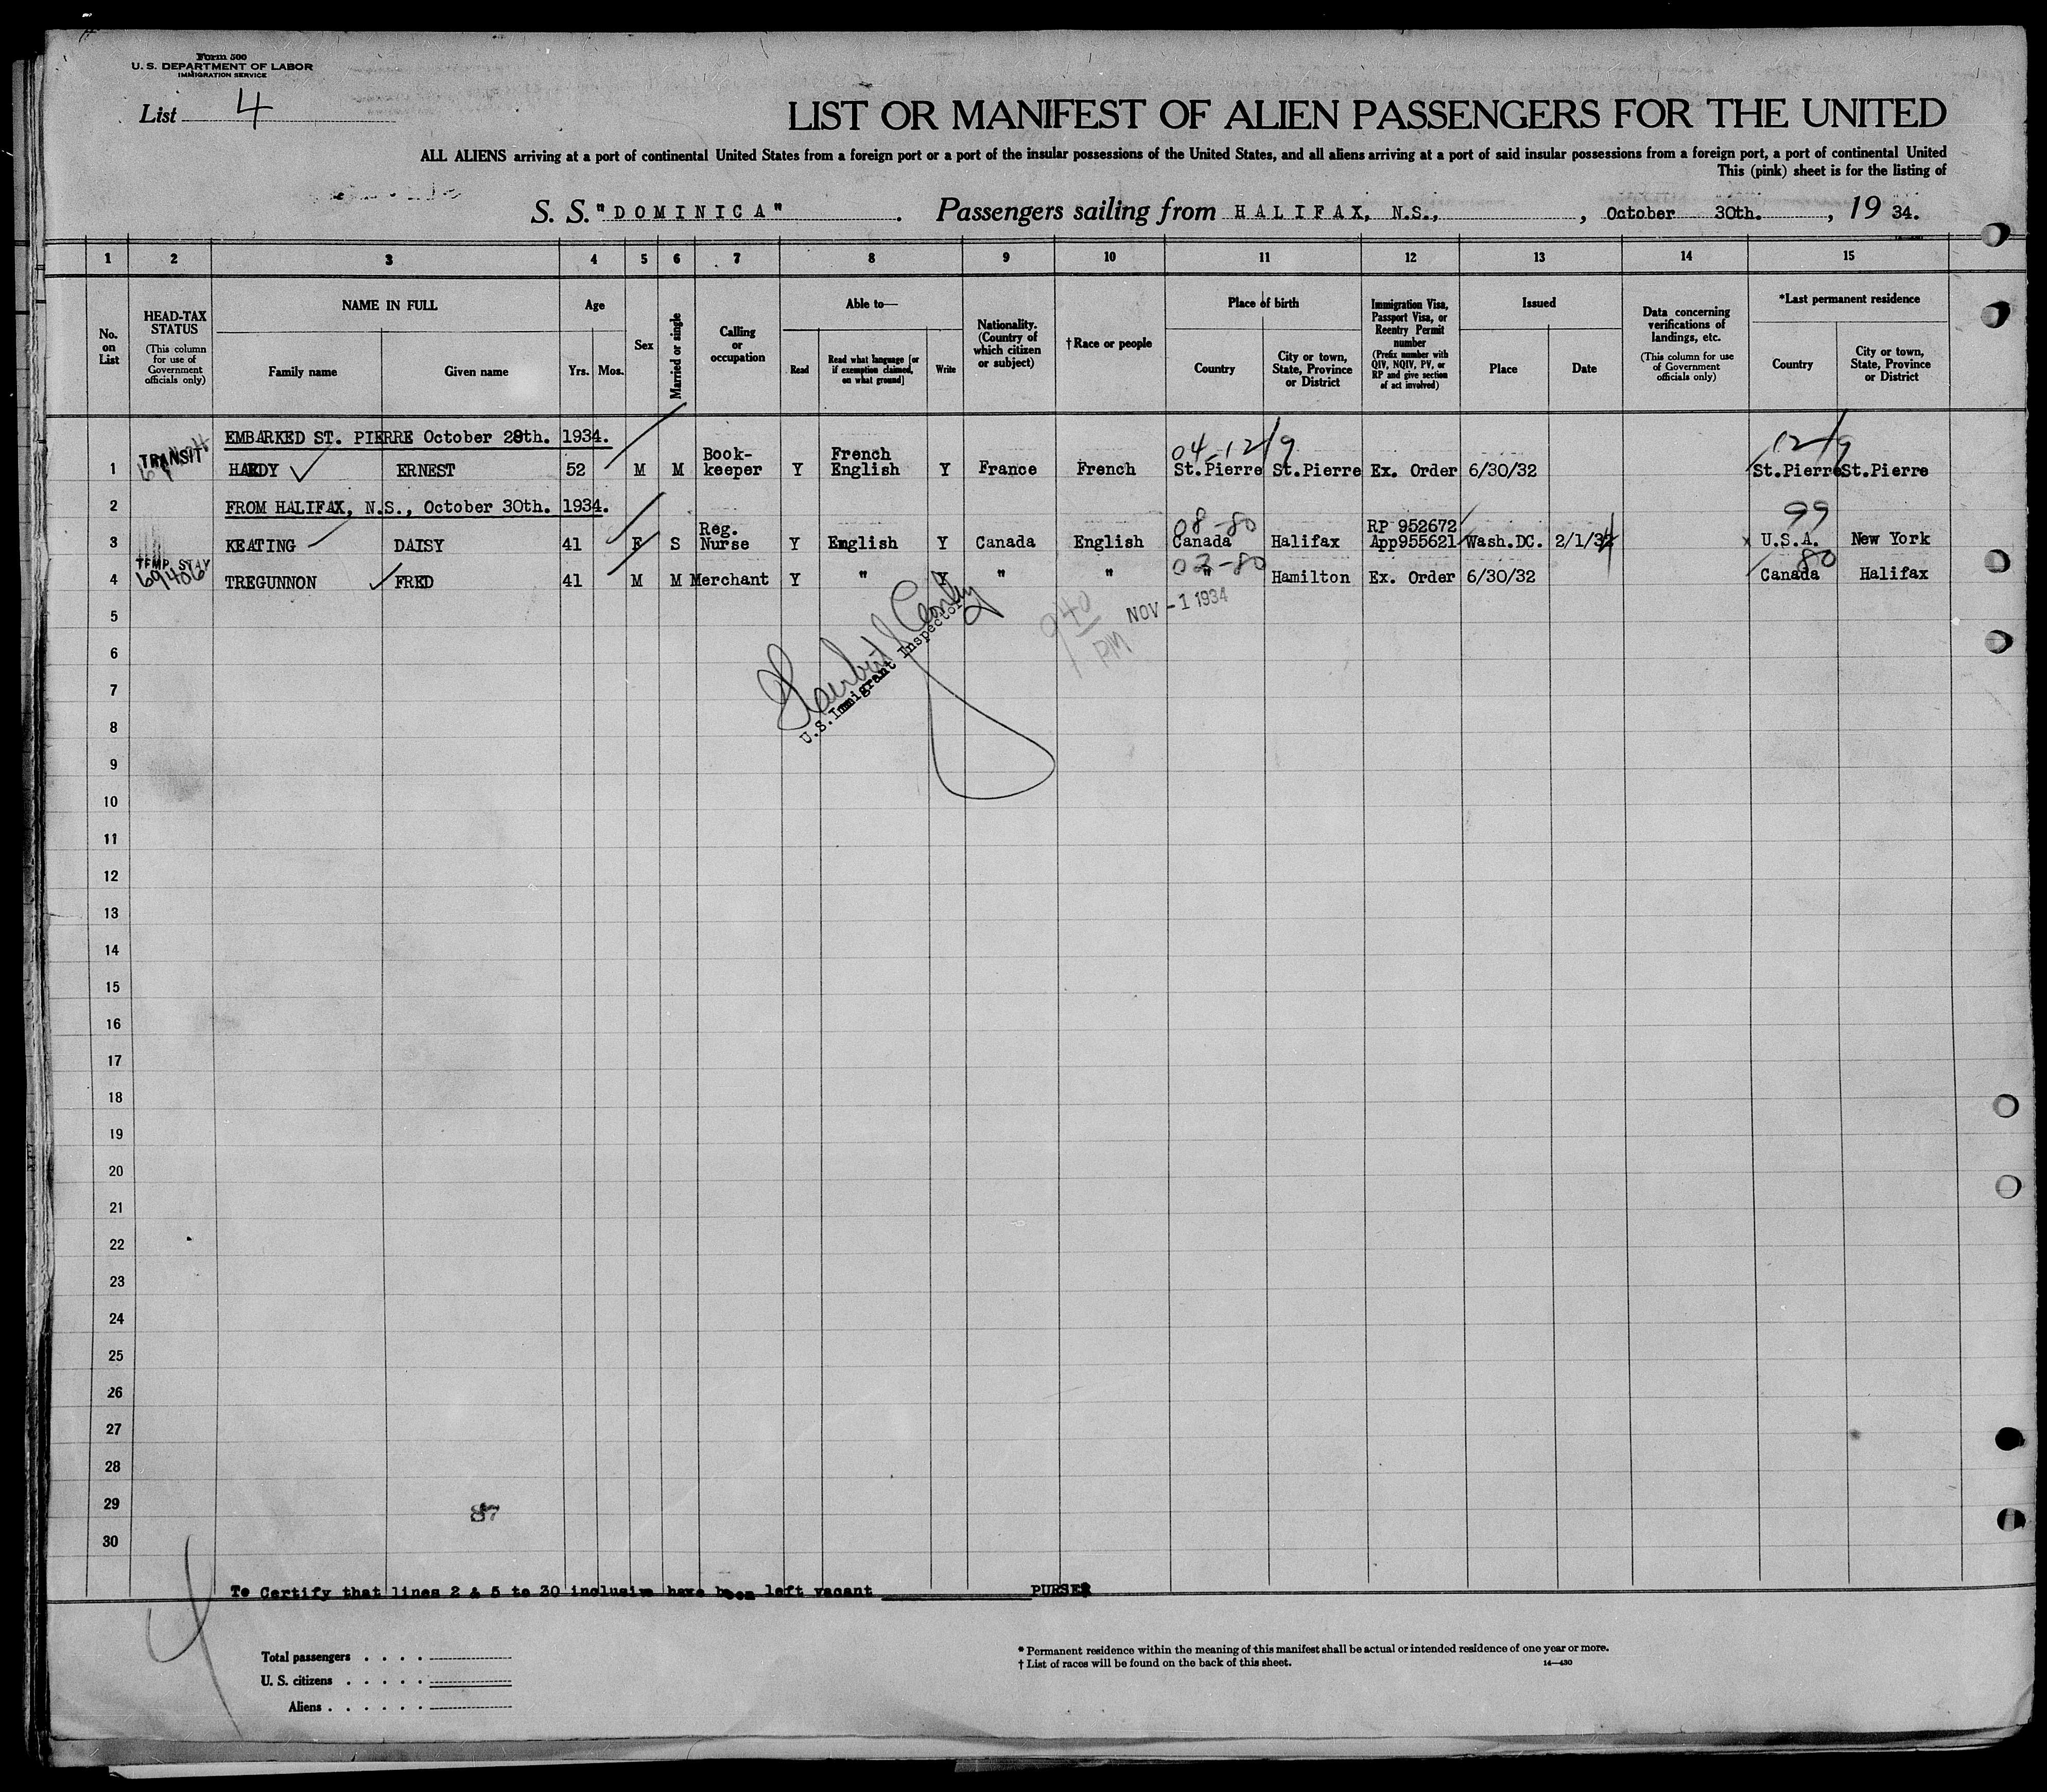 Form 500
U. S. DEPARTMENT OF LABOR
IMMIGRATION SERVICE
List 4
LIST OR MANIFEST OF ALIEN PASSENGERS FOR THE UNITED
ALL ALIENS arriving at a port of continental United States from a foreign port or a port of the insular possessions of the United States, and all aliens arriving at a port of said insular possessions from a foreign port, a port of continental United
This (pink) sheet is for the listing of
S. S. "DOMINICA" . Passengers sailing from HALIFAX, N.S., , October 30th. , 19 34.
1 2 3 4 5 6 7 8 9 10 11 12 13 14 15
No. on List
HEAD-TAX STATUS (This column for use of Government officials only)
NAME IN FULL Family name Given name
Age Yrs. Mos.
Sex
Married or single
Calling or occupation
Able to— Read Read what language [or if exemption claimed, on what ground] Write
Nationality. (Country of which citizen or subject)
†Race or people
Place of birth Country City or town, State, Province or District
Immigration Visa, Passport Visa, or Reentry Permit number (Prefix number with QIV, NQIV, PV, or RP and give section of act involved)
Issued Place Date
Data concerning verifications of landings, etc. (This column for use of Government officials only)
*Last permanent residence Country City or town, State, Province or District
EMBARKED ST. PIERRE October 29th. 1934.
04-12/9 12/9
1 TRANSIT HARDY ERNEST 52 M M Book-keeper Y French English Y France French St.Pierre St.Pierre Ex. Order 6/30/32 St.Pierre St.Pierre
2 FROM HALIFAX, N.S., October 30th. 1934.
08-80 99
3 KEATING DAISY 41 F S Reg. Nurse Y English Y Canada English Canada Halifax RP 952672 App955621 Wash.DC. 2/1/34 x U.S.A. New York
TEMP. STAY 03-80 80
4 69406 TREGUNNON FRED 41 M M Merchant Y " Y " " " Hamilton Ex. Order 6/30/32 Canada Halifax
5
NOV - 1 1934
9 40
PM
U.S. Immigrant Inspector
6
7
8
9
10
11
12
13
14
15
16
17
18
19
20
21
22
23
24
25
26
27
28
29
87
30
To Certify that lines 2 & 5 to 30 inclusive have been left vacant PURSER
Total passengers . . . .
U. S. citizens . . . . .
Aliens . . . . . .
* Permanent residence within the meaning of this manifest shall be actual or intended residence of one year or more.
† List of races will be found on the back of this sheet. 14—430